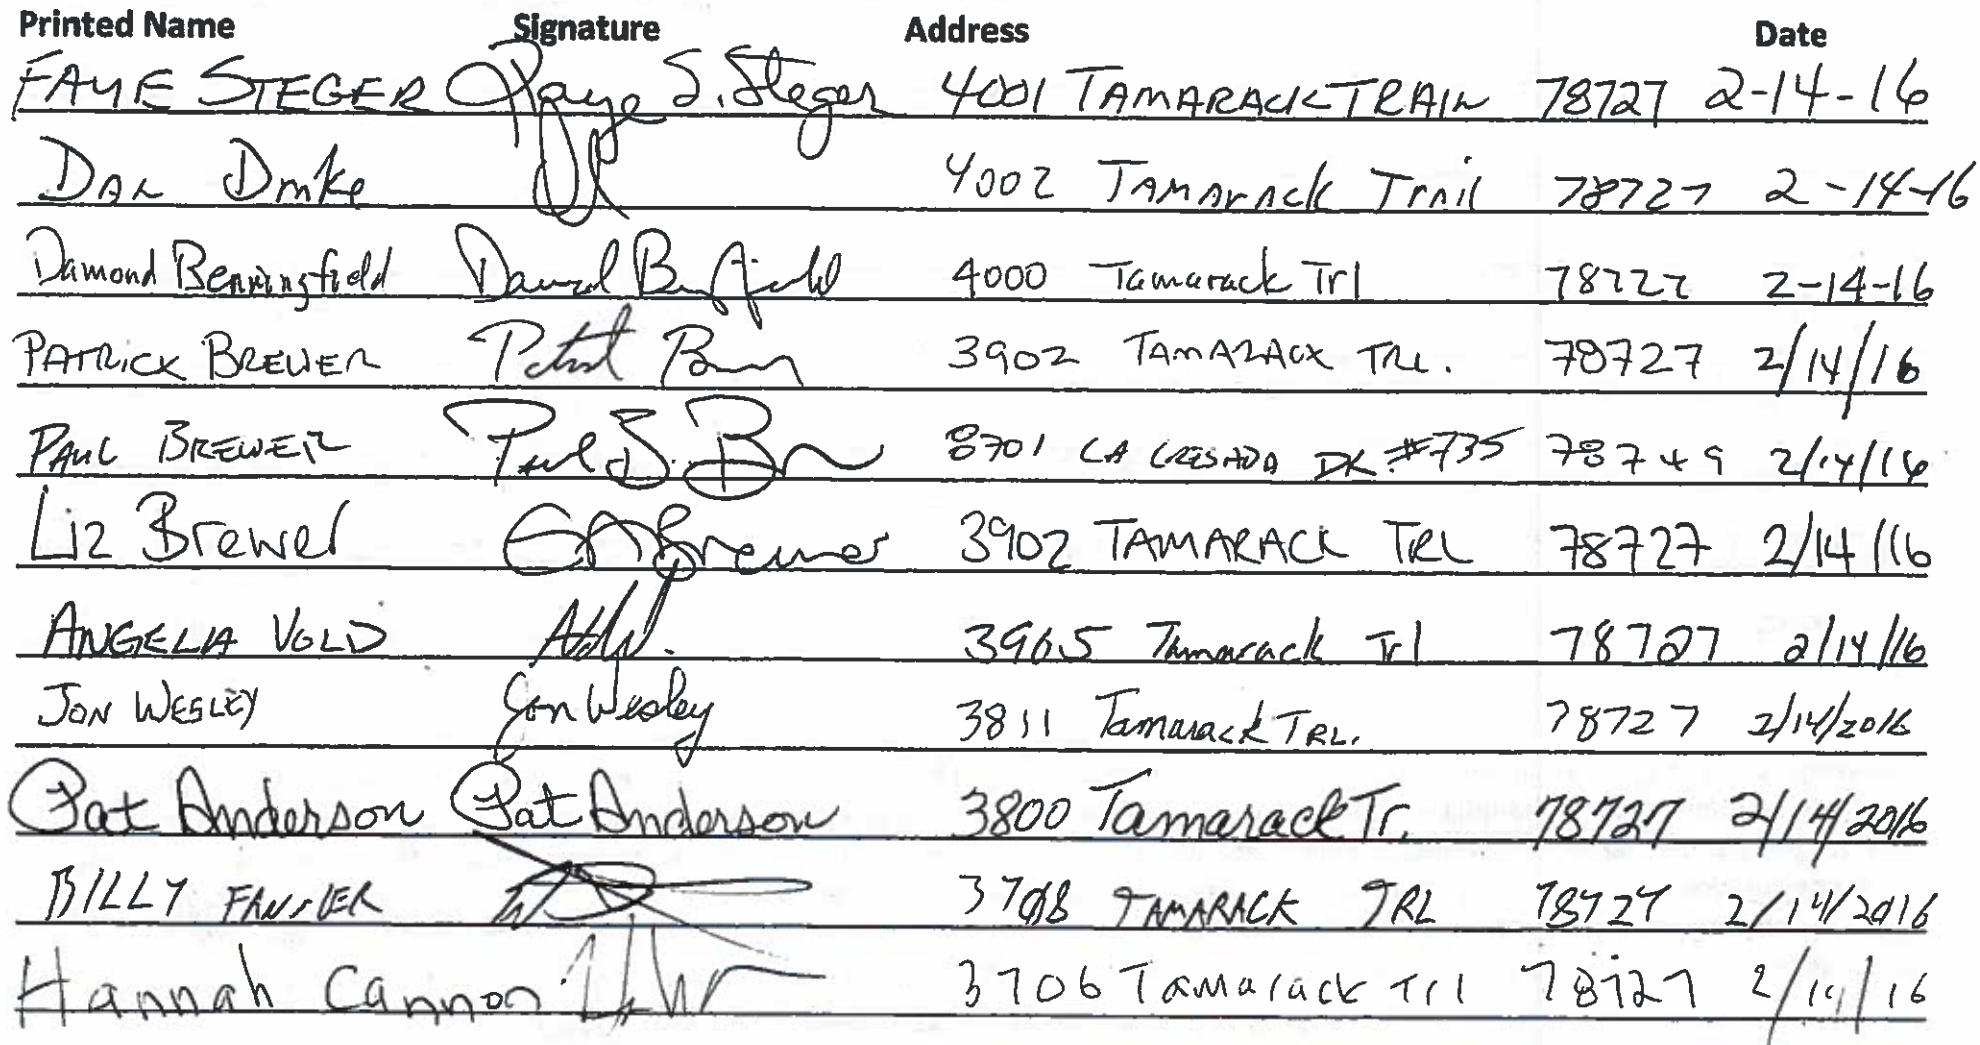 Printed Name Signature Address Date
FAYE STEGER Faye S. Steger 4001 TAMARACK TRAIL 78727 2-14-16
DAN Drake 4002 TAMARACK Trail 78727 2-14-16
Damond Benningfield Damond Benningfield 4000 Tamarack Trl 78727 2-14-16
PATRICK BREWER 3902 TAMARACK TRL. 78727 2/14/16
PAUL BREWER 8701 LA CRESADA DR. #735 78749 2/14/16
Liz Brewer Brewer 3902 TAMARACK TRL 78727 2/14/16
ANGELIA VOLD 3905 Tamarack Trl 78727 2/14/16
JON WESLEY Jon Wesley 3811 Tamarack TRL. 78727 2/14/2016
Pat Anderson Pat Anderson 3800 Tamarack Tr. 78727 2/14/2016
BILLY 3708 TAMARACK TRL 78727 2/14/2016
Hannah Cannon 3706 Tamarack Trl 78727 2/14/16